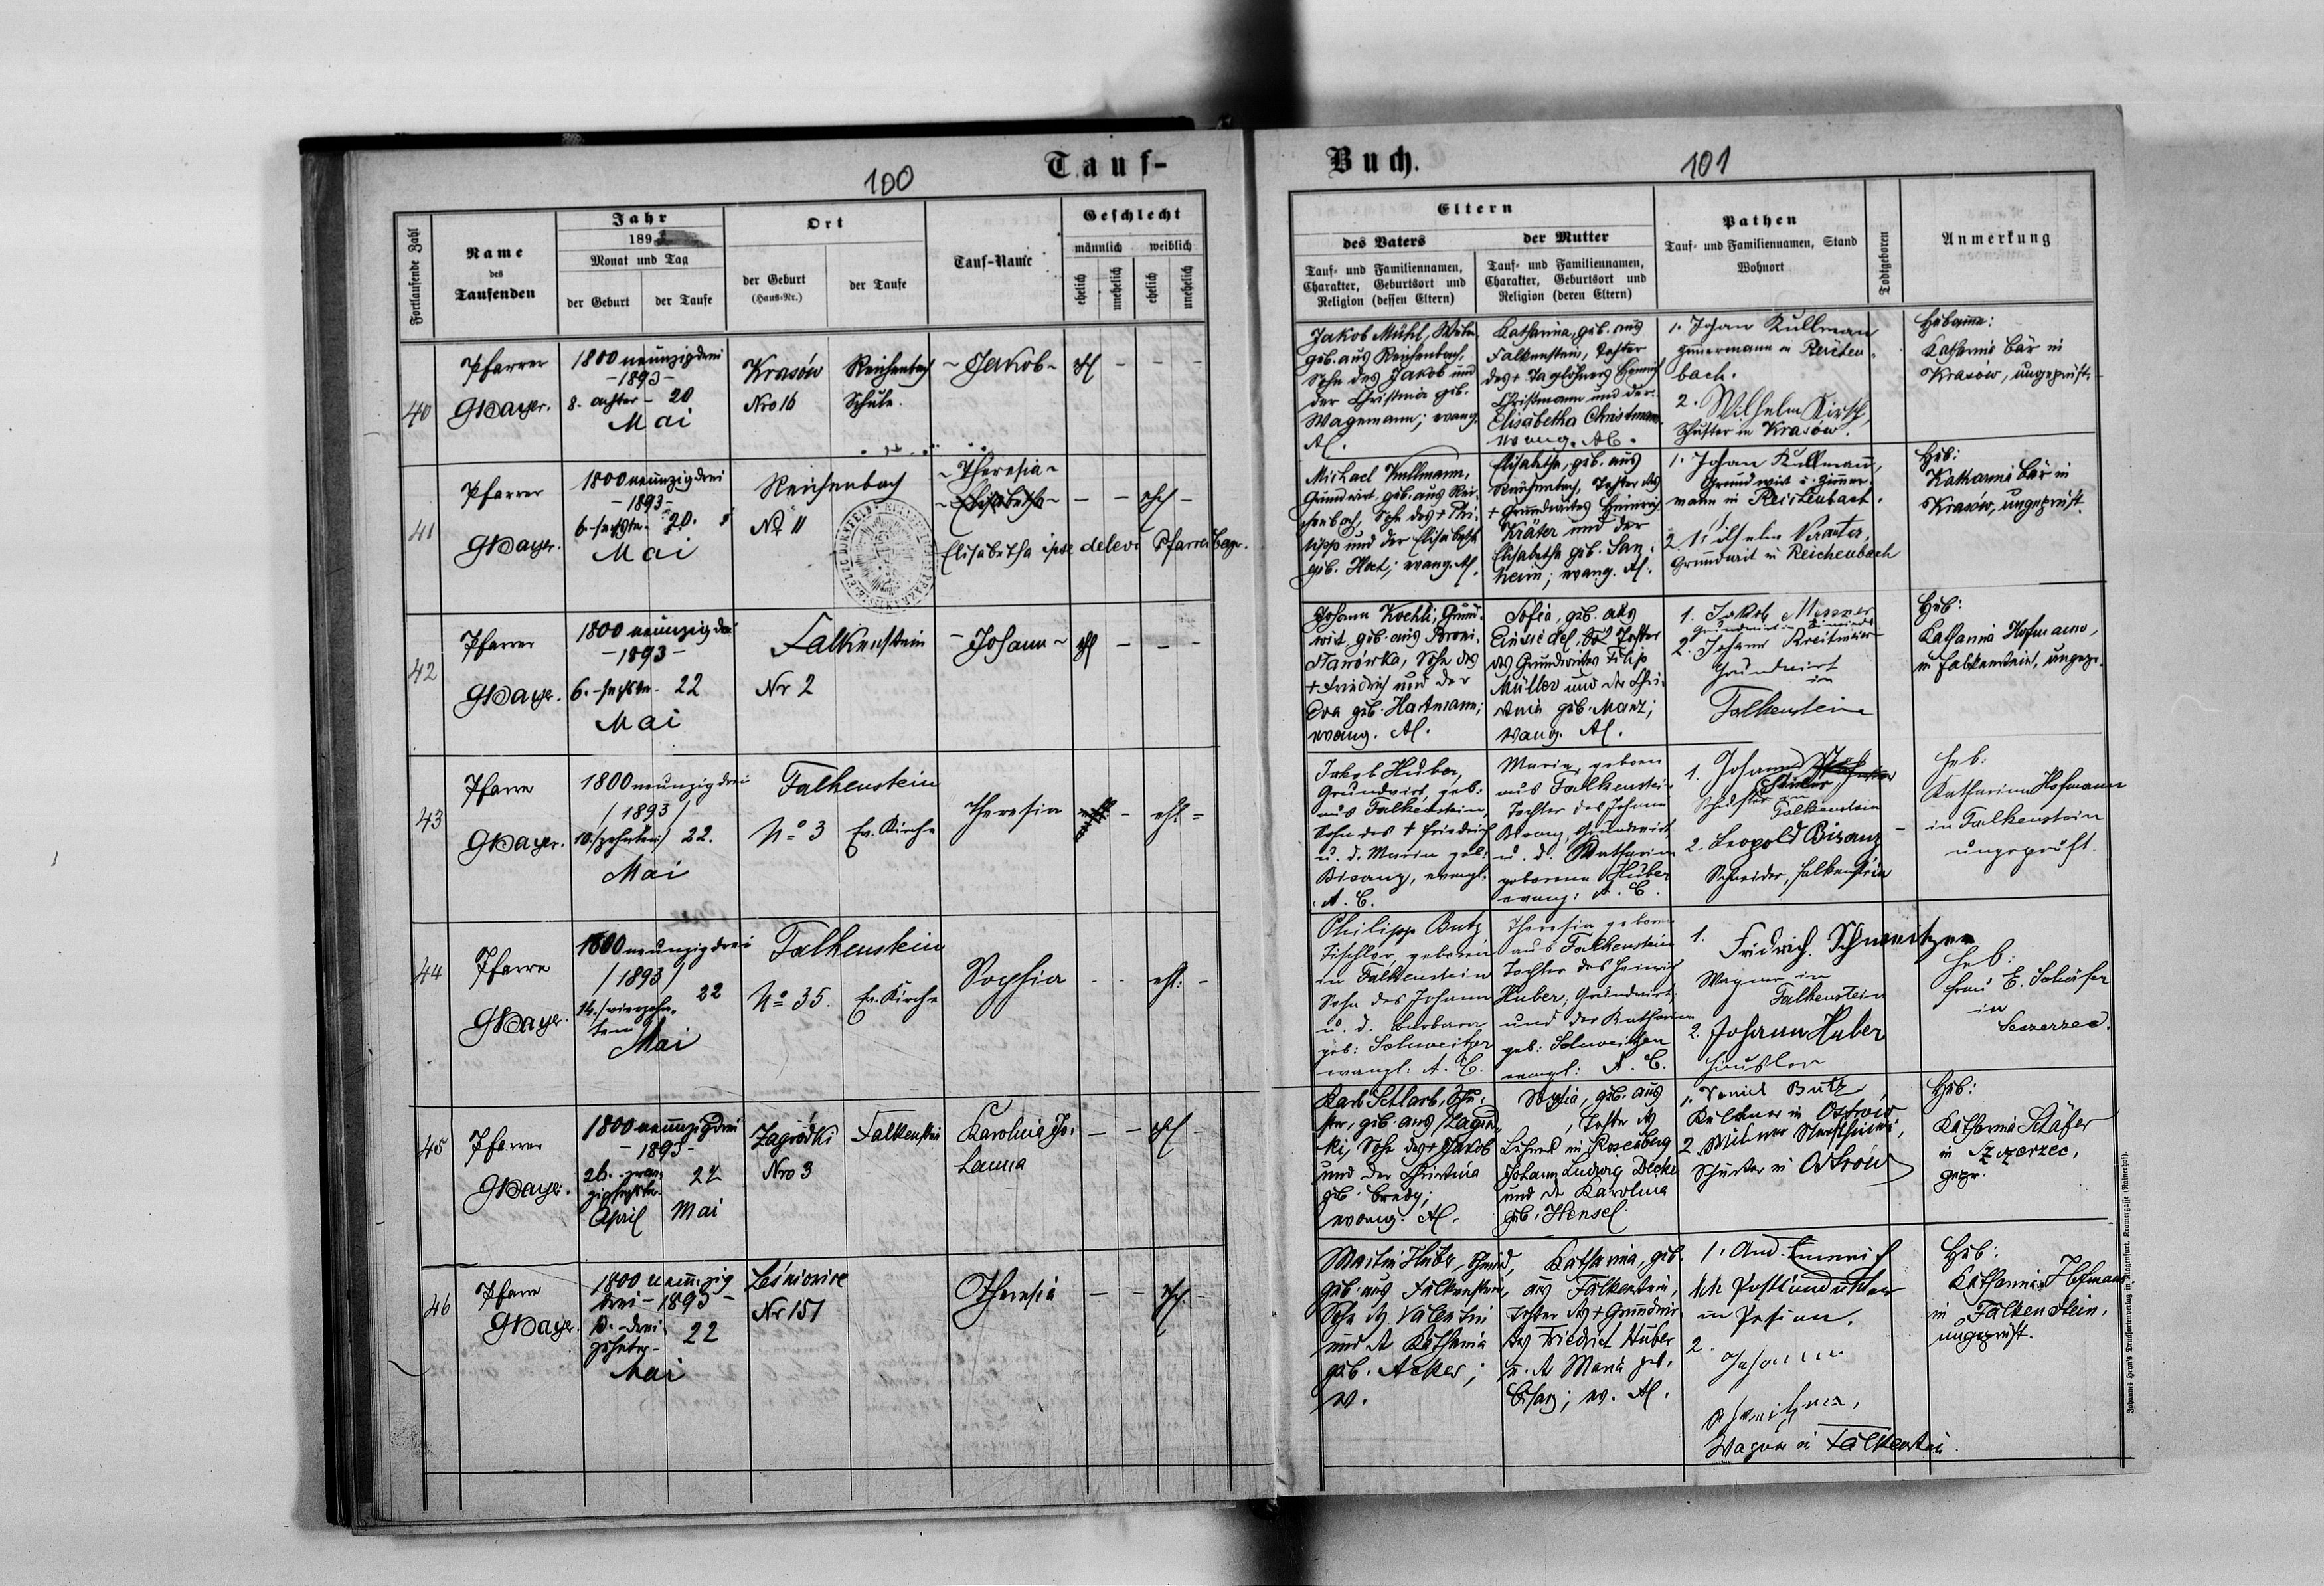 100
Tauf-
Fortlaufende Zahl
Name
des
Taufenden
Jahr
189
Monat und Tag
der Geburt
der Taufe
Ort
der Geburt
(Haus-Nr.)
der Taufe
Tauf-Name
Geschlecht
männlich
weiblich
ehelich
unehelich
ehelich
unehelich
40
Pfarrer
GBayer.
1800 neunzigdrei
-1893-
8. achter - 20
Mai
Krasów
Nro 16
Reichenbach
Schule.
~ Jakob ~
ehl - - -
41
Pfarrer
GBayer.
1800 neunzigdrei
-1893-
6.-sechster- 20.
Mai
Reichenbach
No 11
~ Theresia ~
~ Elisabetha ~
- - ehel -
Elisabetha ipse delevi Pfarrer Bayer.
42
Pfarrer
GBayer.
1800 neunzigdrei
-1893-
6.-sechster- 22
Mai
Falkenstein
Nr 2
- Johann ~
ehl - - -
43
Pfarrer
GBayer.
1800 neunzigdrei
/1893/
10./zehnten/ 22.
Mai
Falkenstein
No 3
Ev. Kirche
Theresia
- ehl. -
44
Pfarrer
GBayer.
1800 neunzigdrei
/1893/
14./vierzehn-
ten 22
Mai
Falkenstein
No 35.
Ev. Kirche
Sophia
- - ehl. -
45
Pfarrer
GBayer.
1800 neunzigdrei
-1893-
26.-zwan-
zigsechster-
April
22
Mai
Zagródki
Nro 3
Falkenstein
Karolina Jo-
hanna
- - ehl -
46
Pfarrer
GBayer.
1800 neunzig
drei - 1893 -
13.-drei-
zehnter- 22
Mai
Leśniovice
Nr 151
Theresia
- - ehl -
Buch.
101
Eltern
des Vaters
Tauf- und Familiennamen,
Charakter, Geburtsort und
Religion (dessen Eltern)
der Mutter
Tauf- und Familiennamen,
Charakter, Geburtsort und
Religion (deren Eltern)
Pathen
Tauf- und Familiennamen, Stand
Wohnort
Todtgeboren
Anmerkung
Jakob Mühl,
geb. aus Reichenbach,
Sohn des Jakob und
der Christina geb.
Wagemann; evang.
AC.
Katharina, geb. aus
Falkenstein, Tochter
des + Taglöhners Heinrich
Christmann und der
Elisabetha Christmann
evang. AC.
1. Johan Kullman
Zimmermann in Reichen-
bach.
2. Wilhelm Kirsch,
Schuster in Krasów.
Hebamme:
Katharina Bär in
Krasow, ungeprüft.
Michael Kullmann,
Grundwirt, geb. aus Rei-
chenbach, Sohn des + Phi-
lipp und der Elisabeth
geb. Host; evang. AC.
Elisabetha, geb. aus
Reichenbach, Tochter des
+ Grundwirtes Heinrich
Kräter und der
Elisabetha geb. San-
heim; evang. AC.
1. Johan Kullmann,
Grundwirt u. Zimmer-
mann in Reichenbach.
2. Wilhelm Kräter,
Grundwirt in Reichenbach
Heb:
Katharina Bär in
Krasów, ungeprüft.
Johann Koehli, Grund-
wirt, geb. aus Broni-
sławówka, Sohn des
+ Friedrich und der
Eva geb. Hartmann;
evang. AC.
Sofia, geb. aus
Einsiedel, Tochter
des Grundwirtes Filip
Müller und der Chri-
stina geb. Manz;
evang. AC.
1. Jakob Messner
Grundwirt in Einsiedel
2. Johann Kreitmeier
Grundwirt
in
Falkenstein
Heb:
Katharina Hofmann,
in Falkenstein, ungepr.
Jakob Huber,
Grundwirt, geb:
aus Falkenstein,
Sohn des + Friedrich
u. d. Maria geb:
Bisanz, evangl:
A. C.
Maria, geboren
aus Falkenstein
Tochter des Johann
Bisanz, Grundwirt
u. d. Katharina
geborene Huber
evang: A. C.
1. Johann
Schuster in
Falkenstein
2. Leopold Bisanz
Schneider, Falkenstein
Heb:
Katharina Hofmann
in Falkenstein
ungeprüft.
Philipp Butz
Tischler, geboren
in Falkenstein
Sohn des Johann
u. d. Barbara
geb: Schweitzer
evangl: A. C.
Theresia geboren
aus Falkenstein
Tochter des Heinrich
Huber; Grundwirt
und der Katharina
geb: Schweitzer
evangl: A. C.
1. Fridrich Schweitzer
Wagner in
Falkenstein
2. Johann Huber
Häusler
Heb:
Frau E. Schäfer
in
Sczerzec.
Karl Setlarb, Schu-
ster, geb. aus Zagród-
ki, Sohn des + Jakob
und der Christina
geb. Bredy;
evang. AC.
Sophia, geb. aus
, Tochter des
Lehrers in Rosenberg
Johann Ludwig Decker
und der Karolina
geb. Hensel
1. Daniel Butz,
in Ostrow
2.
Schuster in Ostrow
Heb:
Katharina Schäfer
in Szczerzec,
gepr.
Martin Huber, Schmied,
geb. aus Falkenstein,
Sohn des Valentin
und der Katharina
geb. Acker;
ev.
Katharina, geb.
aus Falkenstein,
Tochter des + Grundwir-
tes Friedrich Huber
u. der Maria geb.
Bisanz; ev. AC.
1. And. Emmerich
in Pension.
2. Johann
Schweitzer,
Wagner in Falkenstein.
Heb:
Katharina Hofmann
in Falkenstein,
ungeprüft.
Johannes Heyn's Drucksortenverlag in Klagenfurt, Kramergasse (Rainerhof).